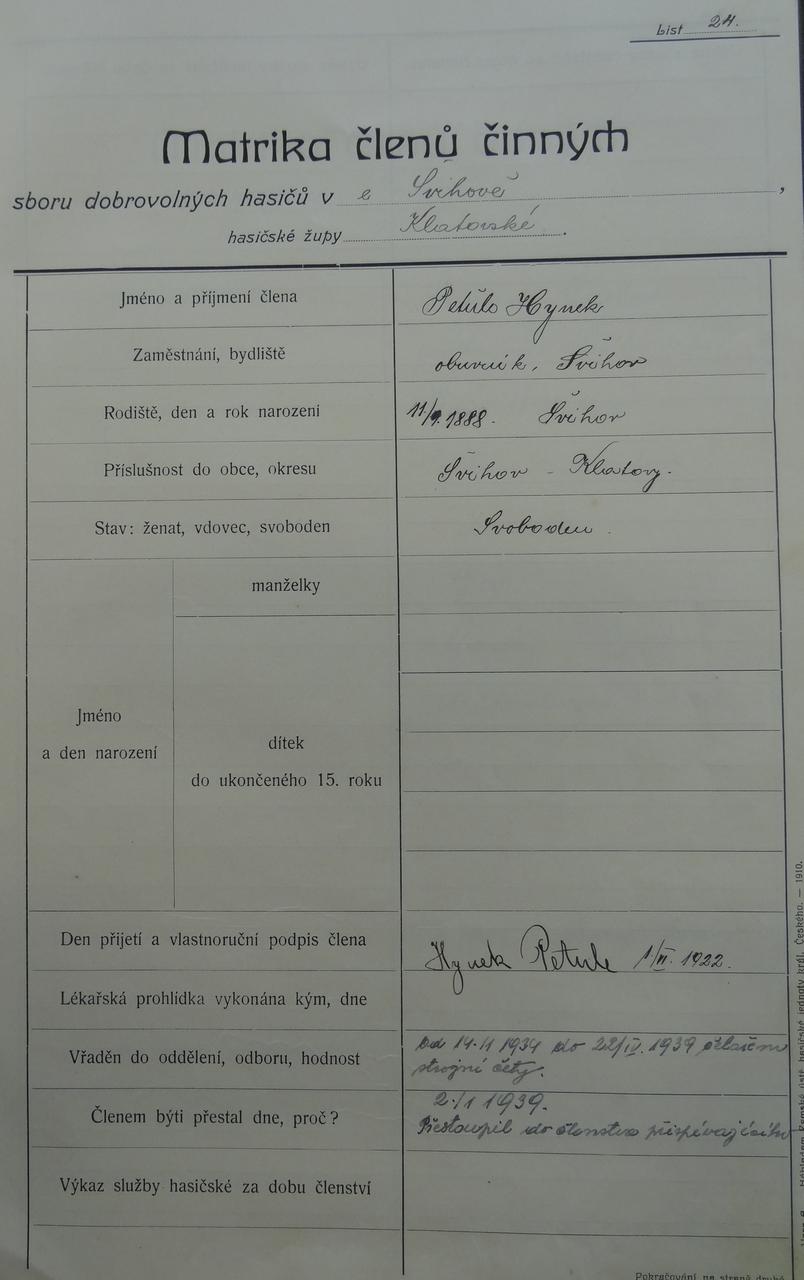 List 24.
Matrika členů činných
sboru dobrovolných hasičů v e Švihově,
hasičské župy Klatovské.
Jméno a příjmení člena Petule Hynek
Zaměstnání, bydliště obuvník, Švihov
Rodiště, den a rok narození 11/9. 1888. Švihov
Příslušnost do obce, okresu Švihov - Klatovy.
Stav: ženat, vdovec, svoboden Svoboden.
manželky
Jméno
a den narození
dítek
do ukončeného 15. roku
Den přijetí a vlastnoruční podpis člena Hynek Petule 1922.
Lékařská prohlídka vykonána kým, dne
Vřaděn do oddělení, odboru, hodnost Od 14.1 1934 do 22/IV. 1939
strojní čety.
2./1 1939.
Členem býti přestal dne, proč? Přestoupil do členstva přispívajícího
Výkaz služby hasičské za dobu členství
Pokračování na straně druhé
hasičské jednoty král. Českého. — 1910.